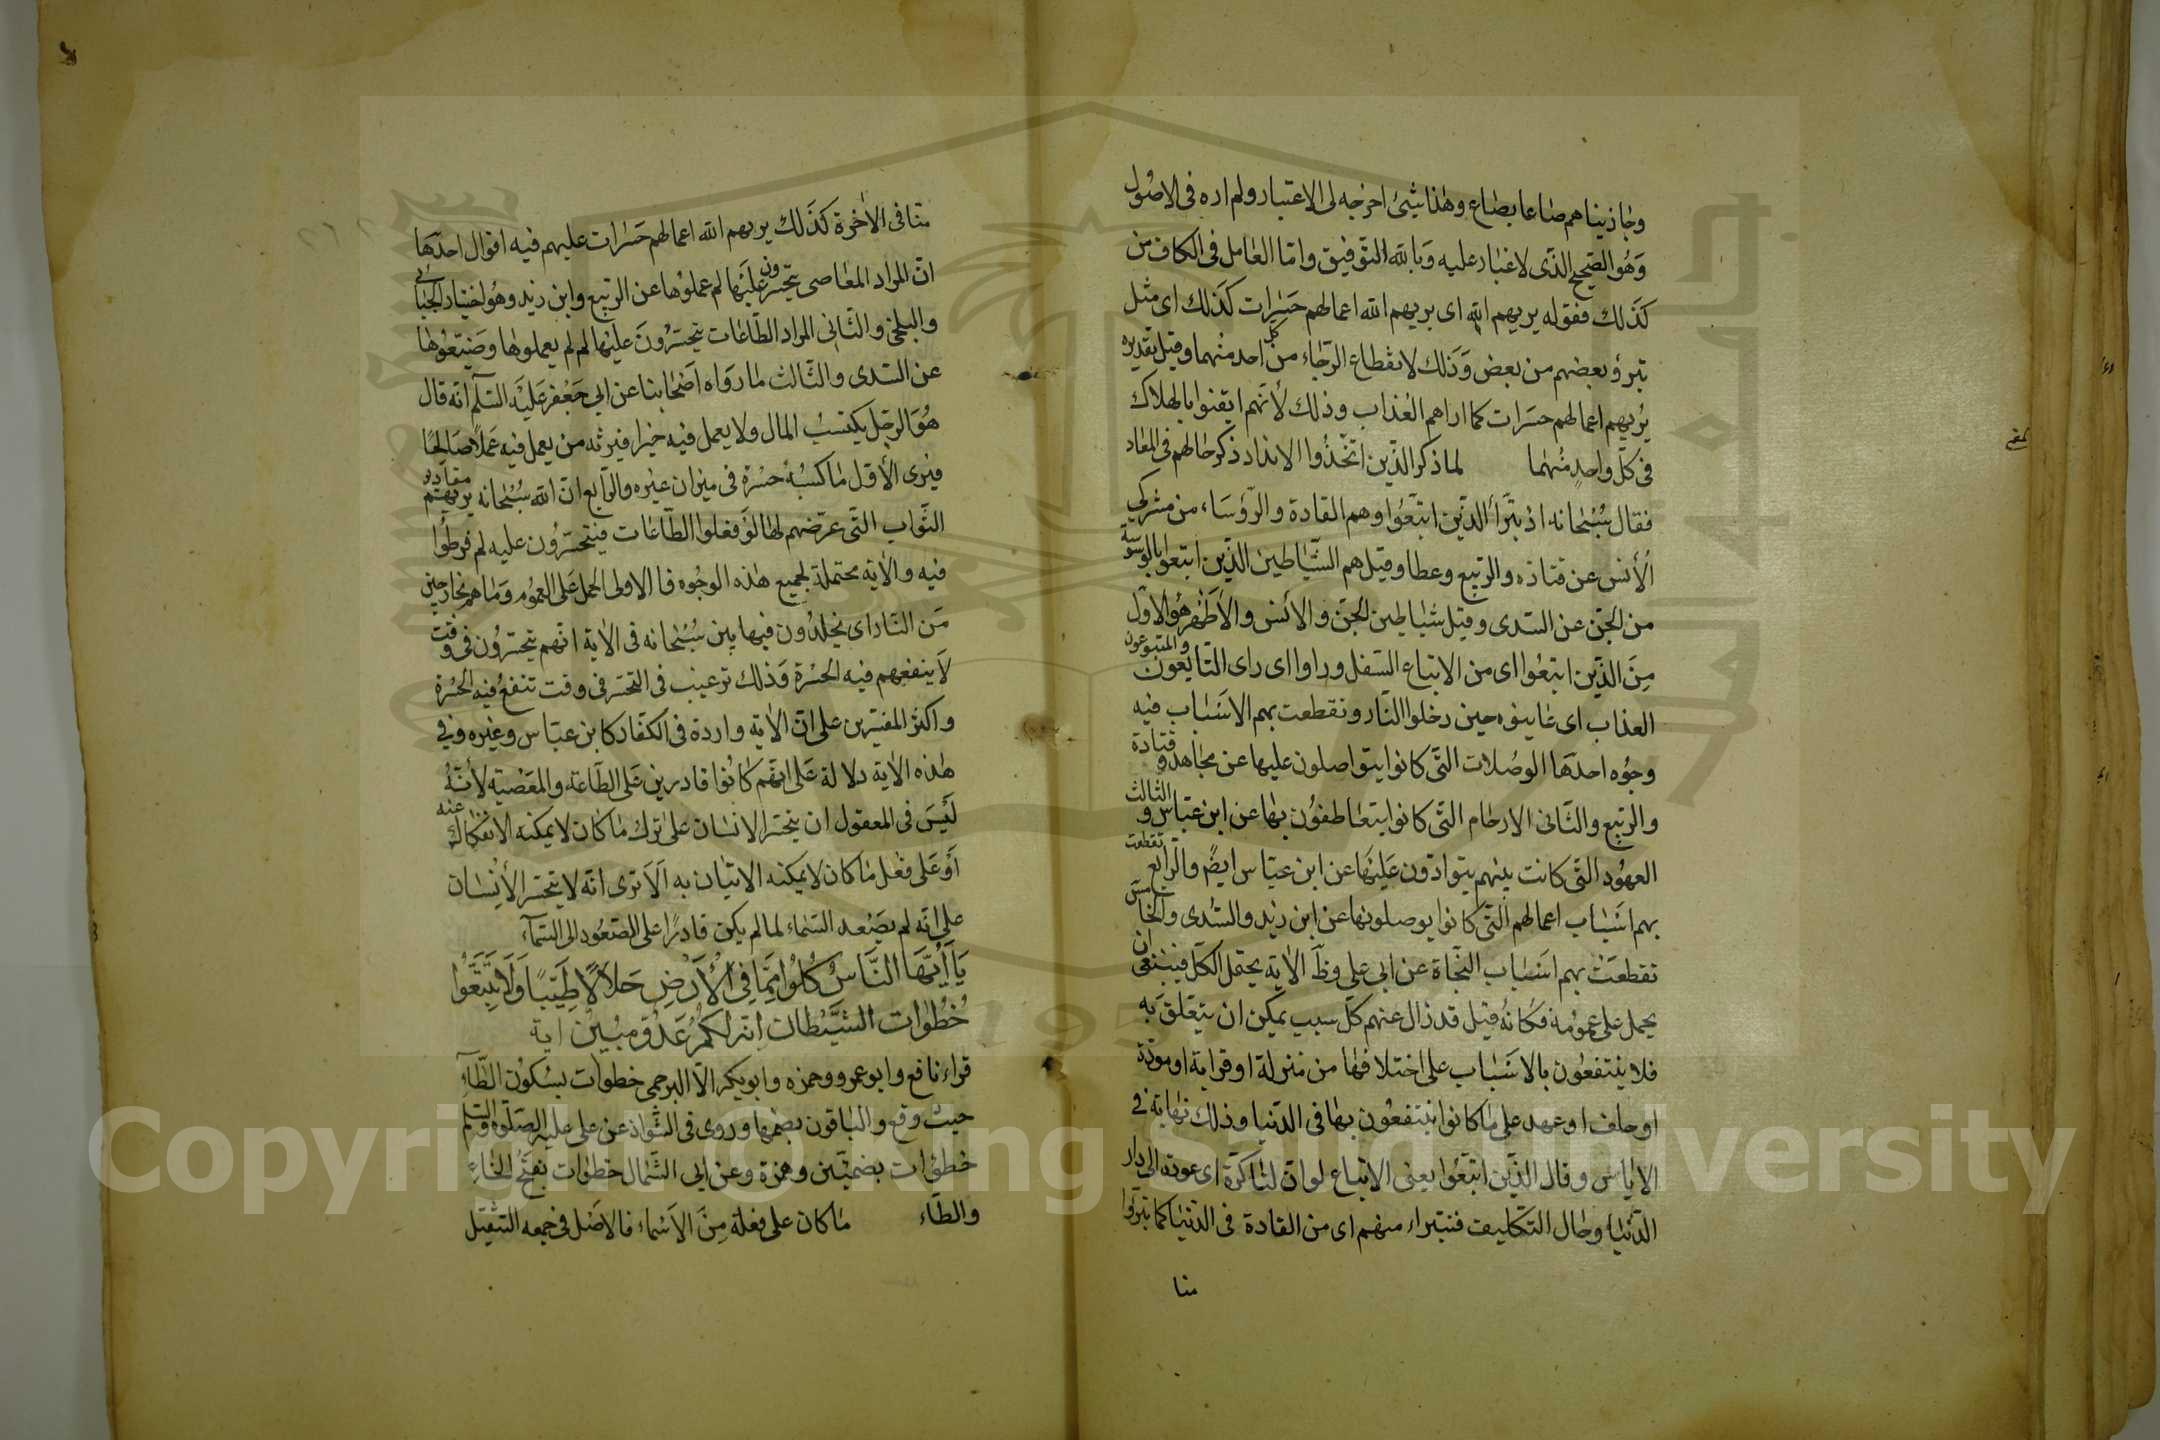 وجازيناهم صاعا بصاع وهذا شئ اخرجه لى الاعتبار ولم اره فى الاصول
وهو الصحيح الذى لاغبار عليه وبالله التوفيق واما العامل فى الكاف من
كذلك فقوله يريهم الله اى يريهم الله اعمالهم حسرات كذلك اى مثل
تبرؤ بعضهم من بعض وذلك لانقطاع الرجاء من كل احد منهما وقيل تقديره
يريهم اعمالهم حسرات كما اراهم العذاب وذلك لأنهم ايقنوا بالهلاك
فى كل واحد منهما لما ذكر الذين اتخذوا الانداد ذكر حالهم فى المعاد
فقال سبحانه اذ تبرأ الذين اتبعوا وهم القادة والرؤساء من مشركى
الأنس عن قتاده والربيع وعطا وقيل هم الشياطين الذين اتبعوا بالوسوسة
من الجن عن السدى وقيل شياطين الجن والانس والأظهر هو الاول
من الذين اتبعوا اى من الاتباع السفل وراوا اى راى التابعون والمتبوعون
العذاب اى عاينوه حين دخلوا النار وتقطعت بهم الاسباب فيه
وجوه احدها الوصلات التى كانوا يتواصلون عليها عن مجاهد وقتادة
والربيع والثانى الارحام التى كانوا يتعاطفون بها عن ابن عباس والثالث
العهود التى كانت بينهم يتوادون عليها عن ابن عباس ايضً والرابع تقطعت
بهم اسباب اعمالهم التى كانوا يوصلونها عن ابن زيد والسدى والخامس
تقطعت بهم اسباب النجاة عن ابى على وظَ الاية يحتمل الكل فينبغى ان
يحمل على عمومه فكانه قيل قد زال عنهم كل سبب يمكن ان يتعلق به
فلا ينتفعون بالاسباب على اختلافها من منزلة او قرابة او مودة
او حلف او عهد على ما كانوا ينتفعون بها فى الدنيا وذلك نهاية فى
الاياس وقال الذين اتبعوا يعنى الاتباع لو ان لنا كرة اى عودة الى دار
الدنيا وحال التكليف فنتبراء منهم اى من القادة فى الدنيا كما تبرؤا
منا
منا فى الآخرة كذلك يريهم الله اعمالهم حسرات عليهم فيه اقوال احدها
ان المراد المعاصى يتحسرون عليها لم عملوها عن الربيع وابن زيد وهو اختيار الجبائى
والبلخى والثانى المراد الطاعات يتحسرون عليها لم لم يعملوها وضيعوها
عن السدى والثالث ما رواه اصحابنا عن ابى جعفر عليه السلم انه قال
هو الرجل يكتسب المال ولا يعمل فيه خيرا فيرثه من يعمل فيه عملا صالحا
فيرى الأول ما كسبه حسرة فى ميزان غيره والرابع ان الله سبحانه يريهم مقادير
الثواب التى عرضهم لها لو فعلوا الطاعات فيتحسرون عليه لم فرطوا
فيه والاية محتملة لجميع هذه الوجوه فالاولى الحمل على العموم وما هم بخارجين
من النار اى يخلدون فيها بين سبحانه فى الاية انهم يتحسرون فى وقت
لا ينفعهم فيه الحسرة وذلك ترغيب فى التحسر فى وقت تنفع فيه الحسرة
واكثر المفسرين على ان الاية واردة فى الكفار كابن عباس وغيره وفى
هذه الاية دلالة على انهم كانوا قادرين على الطاعة والمعصية لأنه
ليس فى المعقول ان يتحسر الانسان على ترك ما كان لا يمكنه الانفكاك عنه
أو على فعل ما كان لا يمكنه الاتيان به ألا ترى انه لا يتحسر الأنسان
على انه لم يصعد السماء لما لم يكن قادرا على الصعود الى السمآء
يَا أَيُّهَا النَّاسُ كُلُوا مِمَّا فِي الْأَرْضِ حَلَالًا طَيِّبًا وَلَا تَتَّبِعُوا
خُطُوَات الشَّيْطان انه لكم عدو مبين اية
قراء نافع وابو عمرو وحمزه وابو بكر الا البرجمى خطوات بسكون الطاء
حيث وقع والباقون بضمها وروى فى الشواذ عن على عليه الصلوة والسلم
خطؤات بضمتين وهمزة وعن ابى الشمال خطوات بفتح الخاء
والطاء ما كان على فعلة من الاسماء فالاصل فى جمعه التثقيل
Copyright © King Saud University